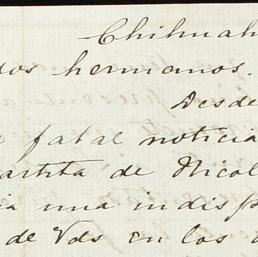 Chihuah
dos hermanos.
Desde
fatal noticia
artita de Nicol
ia una indisp
de Vds en los